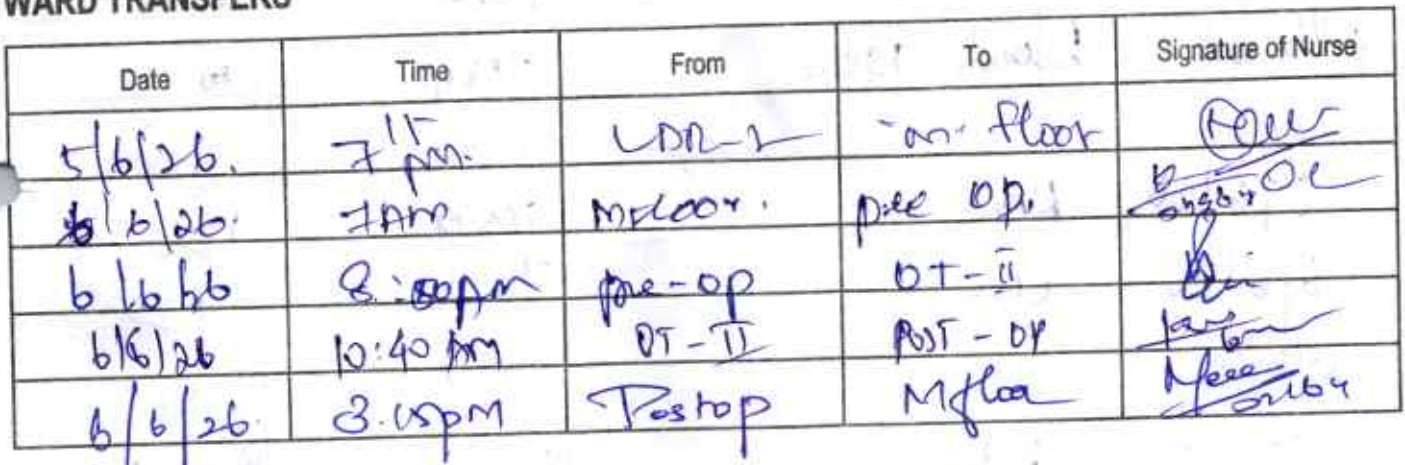 WARD TRANSFERS
Date Time From To Signature of Nurse
5/6/26. 7 15 pm. LDR-2 m floor
6/6/26. 7AM Mfloor. pre op.
6/6/26 pre-op OT-II
6/6/26 10:40 AM OT-II POST-OP
6/6/26. 3.15pm Postop Mfloor